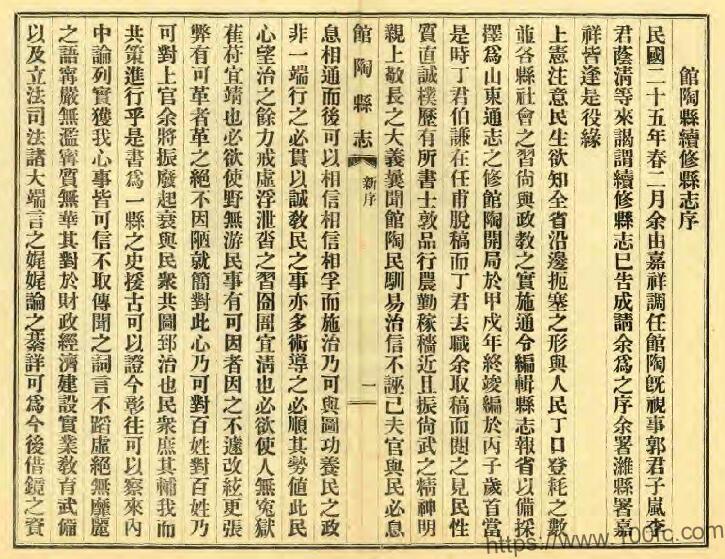 館陶縣續修縣志序
民國二十五年春二月余由嘉祥調任館陶既視事郭君子嵐李
君蔭清等來謁謂續修縣志已告成請余為之序余署濰縣署嘉
祥皆逢是役緣
上憲注意民生欲知全省沿邊扼塞之形與人民丁口登耗之數
並各縣社會之習尚與政教之實施通令編輯縣志報省以備採
擇為山東通志之修館陶開局於甲戌年終竣編於丙子歲首當
是時丁君伯謙在任甫脫稿而丁君去職余取稿而閱之見民性
質直誠樸歷有所書士敦品行農勤稼穡近且振尚武之精神明
親上敬長之大義曩聞館陶民馴易治信不誣已夫官與民必息
館陶縣志
新序
一
息相通而後可以相信相信相孚而施治乃可與圖功養民之政
非一端行之必貫以誠教民之事亦多術導之必順其勢値此民
心望治之餘力戒虛浮泄沓之習囹圄宜清也必欲使人無冤獄
萑苻宜靖也必欲使野無游民事有可因者因之不遽改絃更張
弊有可革者革之絕不因陋就簡對此心乃可對百姓對百姓乃
可對上官余將振廢起衰與民衆共圖郅治也民衆庶其輔我而
共策進行乎是書為一縣之史援古可以證今彰往可以察來內
中論列實獲我心事皆可信不取傳聞之詞言不蹈虛絕無靡麗
之語寧嚴無濫寧質無華其對於財政經濟建設實業教育武備
以及立法司法諸大端言之娓娓論之綦詳可為今後借鏡之資
https://www.100fc.com